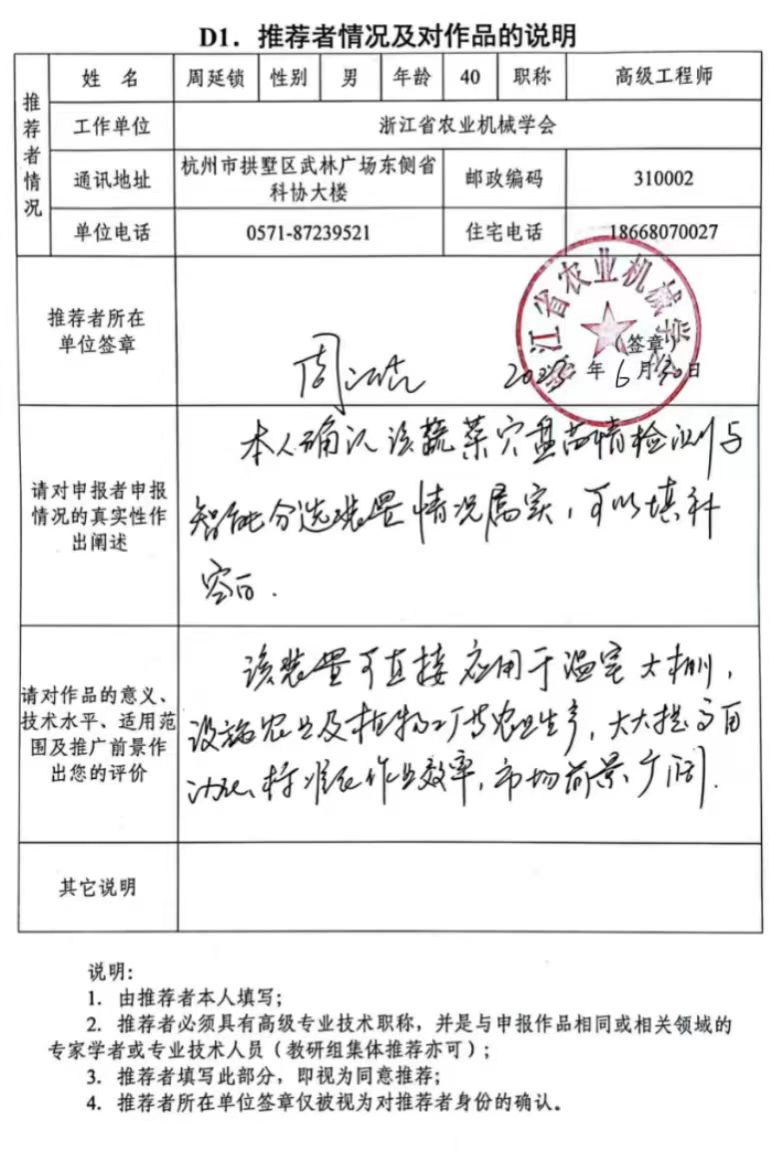 D1. 推荐者情况及对作品的说明
推荐者情况
姓 名 周延锁 性别 男 年龄 40 职称 高级工程师
工作单位 浙江省农业机械学会
通讯地址 杭州市拱墅区武林广场东侧省
科协大楼
邮政编码 310002
单位电话 0571-87239521 住宅电话 18668070027
推荐者所在
单位签章
浙江省农业机械学会
(签章)
年 6 月 30 日
请对申报者申报
情况的真实性作
出阐述
本人确认该蔬菜穴盘苗情检测与
智能分选装置情况属实,可以填补
空白.
请对作品的意义、
技术水平、适用范
围及推广前景作
出您的评价
该装置可直接应用于温室大棚,
设施农业及植物工厂等农业生产,大大提高自
动化、标准化作业效率,市场前景广阔.
其它说明
说明:
1. 由推荐者本人填写;
2. 推荐者必须具有高级专业技术职称,并是与申报作品相同或相关领域的
专家学者或专业技术人员(教研组集体推荐亦可);
3. 推荐者填写此部分,即视为同意推荐;
4. 推荐者所在单位签章仅被视为对推荐者身份的确认。